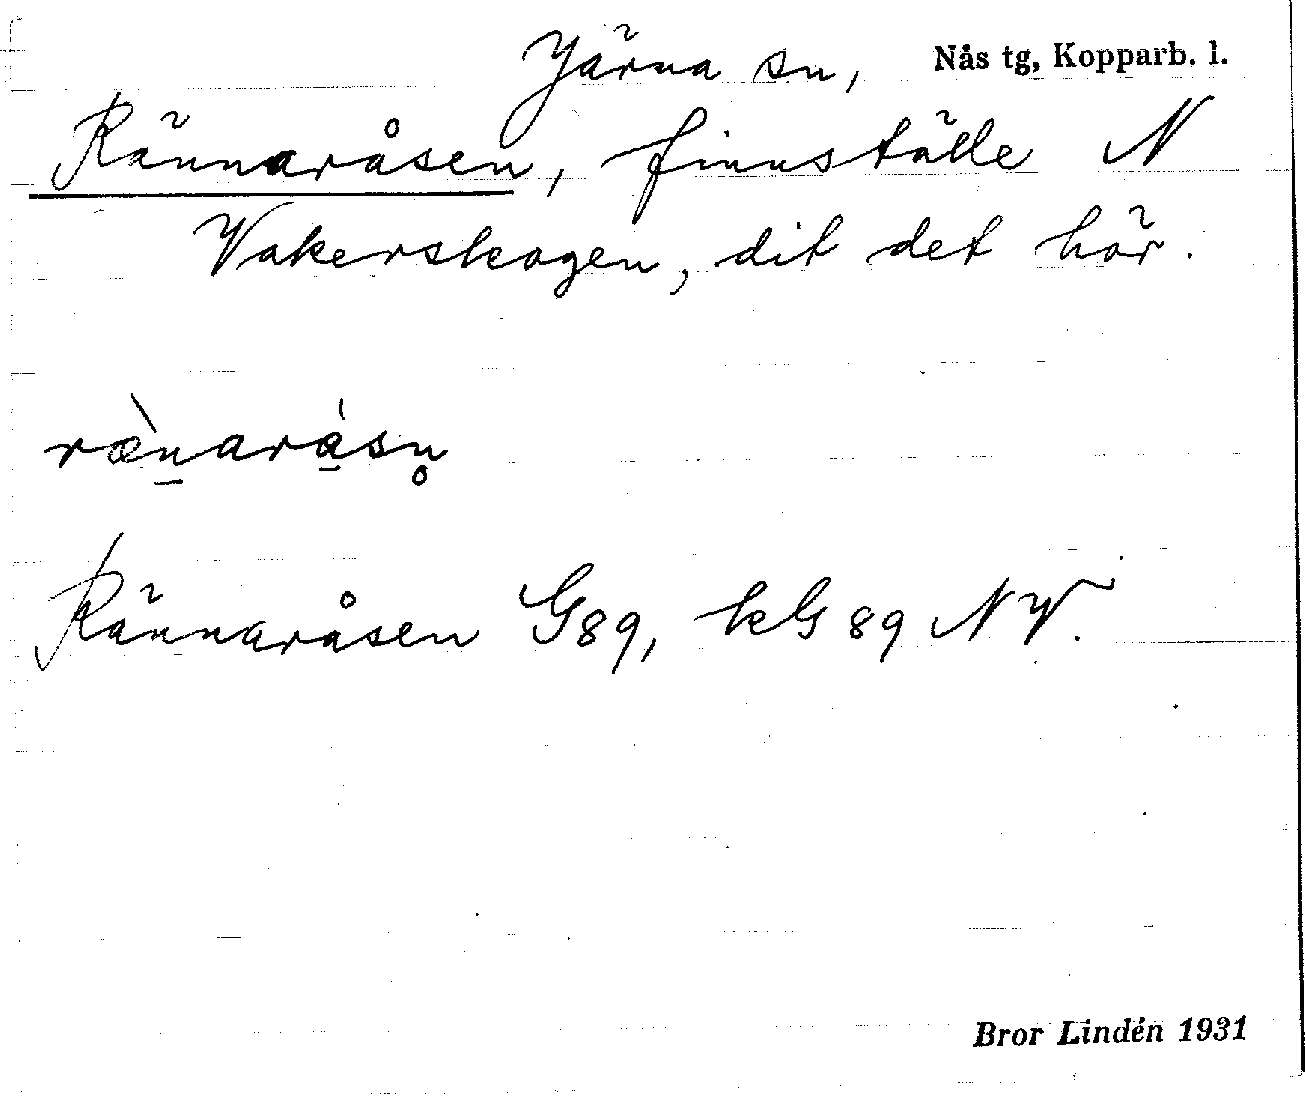 Järna sn, Nås tg, Kopparb. l.
Rännaråsen, finnställe N
Vakerskogen, dit det hör.
ræ̀n̲arǻ̲sn̥
Rännaråsen G89, kG 89 NV.
Bror Lindén 1931